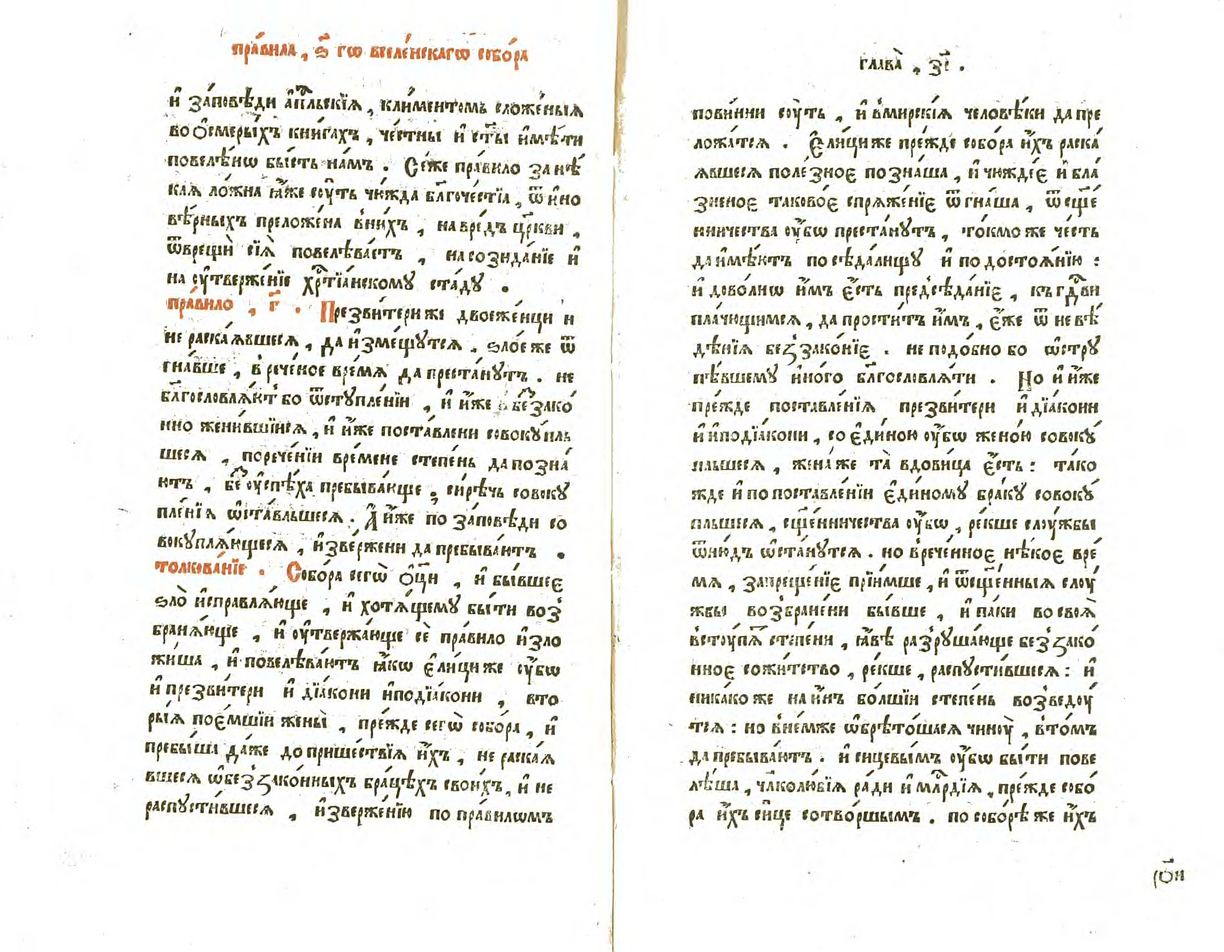 пра́вила , ѕ҃ гѡ вселе́нскагѡ собо́ра
и҆ за́повѣди а҆пⷭ҇льскїѧ , климентомъ сложе́ныѧ
во ѻ҆смеры́хъ книгахъ , че́стны и҆ ст҃ы и҆мѣ́ти
повелѣ́нѡ бы́сть на́мъ . Се́же пра́вило за нѣ́
каѧ ло́жна ꙗ҆́же сѹ́ть чю́жда бл҃гоче́стїа , ѿ и҆но
вѣ́рныхъ преложе́на в́нихъ , на вре́дъ цр҃кви ,
ѿврещѝ сїѧ̀ повелѣва́етъ , на сози́данїе и҆
на ѹ҆твержє́нїе хрⷭ҇тїа́нскому ста́дꙋ .
пра́вило , г҃ . Презви́тери же двоеже́нци и
не раска́ѧвшесѧ , да и҆зме́щутсѧ . ѕло́е же ѿ
гна́вше , в рече́ное вре́мѧ да преста́нутъ . не
бл҃гословлѧ́ют бо ѿстꙋпле́нїи , и҆ и҆́же беззако́
нно жени́вшїисѧ , и҆ и҆́же поста́влени совокꙋ́пль
шесѧ , по рече́нїи вре́мене степе́нь да позна́
ютъ , без̾ ѹ҆спѣ́ха пребыва́юще , сирѣ́чь совокꙋ
пле́нїѧ ѡ҆ста́вльшесѧ . А и҆́же по за́повѣди со
вокꙋплѧ́ющесѧ , и҆зве́ржени да пребыва́ютъ .
толкова́нїе . Собо́ра сегѡ̀ ѻ҆ц҃ы , и҆ бы́вшеє
ѕло̀ и҆справлѧ́юще , и҆ хотѧ́щемꙋ бы́ти воз̾
бранѧ́юще , и҆ ѹ҆твержа́юще сѐ пра́вило и҆зло
жи́ша , и҆ повелѣва́ютъ ꙗ҆́кѡ є҆ли́цы же ѹ҆́бѡ
и҆ презви́тери и҆ дїа́кони и҆подїа́кони , вто
ры́ѧ пое́мшїи жены̀ , пре́жде сегѡ̀ собо́ра , и҆
пребы́ша да́же до прише́ствїѧ и҆́хъ , не раска́ѧ
вшесѧ ѡ҆ беззако́нныхъ бра́цѣхъ свои́хъ , и҆ не
распꙋсти́вшесѧ , и҆зверже́нїю по пра́вилѡмъ
глава̀ , з҃ї .
пови́нни сѹ́ть , и҆ в̾ми́рскїѧ человѣ́ки да пре
ло́жатсѧ . Є҆ли́цы же пре́жде собо́ра и҆́хъ раска́
ѧвшесѧ поле́зноє позна́ша , и҆ чюжде́є и҆ бла́
зненоє таково́є спрѧже́нїє ѿгна́ша , ѿ сще
нничества ѹ҆́бѡ преста́нутъ , то́кмо же че́сть
да и҆мѣ́ютъ по сѣда́лищу и҆ по достоѧ́нїю :
и҆ дово́лнѡ и҆̀мъ є҆́сть предсѣда́нїє , къ гдⷭ҇ви
пла́чющимсѧ , да прости́тъ и҆̀мъ , є҆́же ѿ невѣ́
дѣнїѧ беззако́нїє . не подо́бно бо ѡ҆стрꙋ
пѣ́вшемꙋ и҆но́го бл҃гословлѧ́ти . Но и҆ и҆́же
пре́жде поставле́нїѧ презви́тери и҆ дїа́кони
и҆ и҆подїа́кони , со є҆ди́ною ѹ҆́бѡ жено́ю совокꙋ́
пльшесѧ , жена́ же та̀ вдови́ца є҆́сть : та́ко
жде и҆ по поставле́нїи є҆ди́номꙋ бра́кꙋ совокꙋ́
пльшесѧ , сщ҃е́нничества ѹ҆́бѡ , ре́кше слꙋ́жбы
ѿню́дъ ѡ҆ста́нутсѧ . но в̾рече́нноє нѣ́коє вре́
мѧ , запреще́нїє прїи́мше , и҆ ѿ сще́нныѧ слѹ́
жбы возбране́ни бы́вше , и҆ па́ки во своѧ̀
встѹ́пѧт степе́ни , ꙗ҆́вѣ разрꙋша́юще беззако́
нноє сожи́тство , ре́кше , распꙋсти́вшесѧ : и҆
ника́ко же на и҆́нъ бо́лшїи степе́нь возведѹ́
тсѧ : но в̾не́мже ѡ҆брѣто́шасѧ чинѹ̀ , в̾то́мъ
да пребыва́ютъ . и҆ сицевы́мъ ѹ҆́бѡ бы́ти пове
лѣ́ша , чл҃колю́бїѧ ра́ди и҆ млⷭ҇рдїѧ , пре́жде собо́
ра и҆́хъ си́це сотво́ршымъ . по собо́рѣ же и҆́хъ